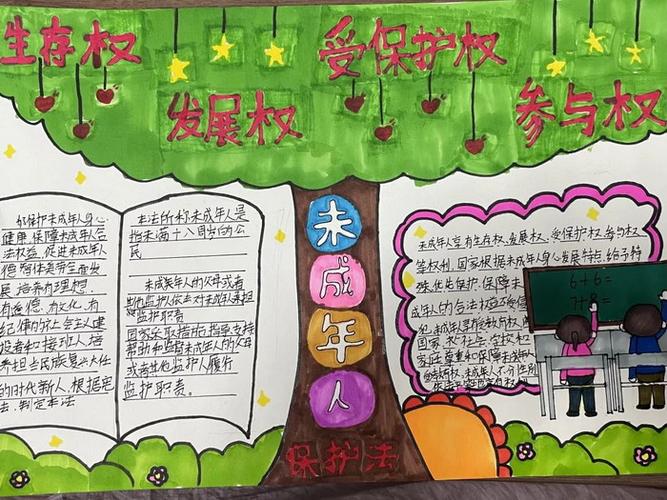 生存权
受保护权
发展权
参与权
为保护未成年人身心
健康,保障未成年人合
法权益,促进未成年人
德智体美劳全面发
展,培养有理想、
有道德、有文化、有
纪律的社会主义建
设者和接班人,培
养担当民族复兴大任
的时代新人,根据宪
法,制定本法
本法所称未成年人是
指未满十八周岁的公
民
未成年人的父母或者
其他监护人依法对未成年人承担
监护职责
国家采取措施指导、支持、
帮助和监督未成年人的父母
或者其他监护人履行
监护职责。
未
成
年
人
保护法
未成年人享有生存权、发展权、受保护权、参与权
等权利,国家根据未成年人身心发展特点给予特
殊、优先保护,保障未
成年人的合法权益不受侵
犯.未成年人享有教育权,
国家、社会、学校和
家庭尊重和保障未成年人
的受教育权.未成年人不分性别
6+6=
7+8=